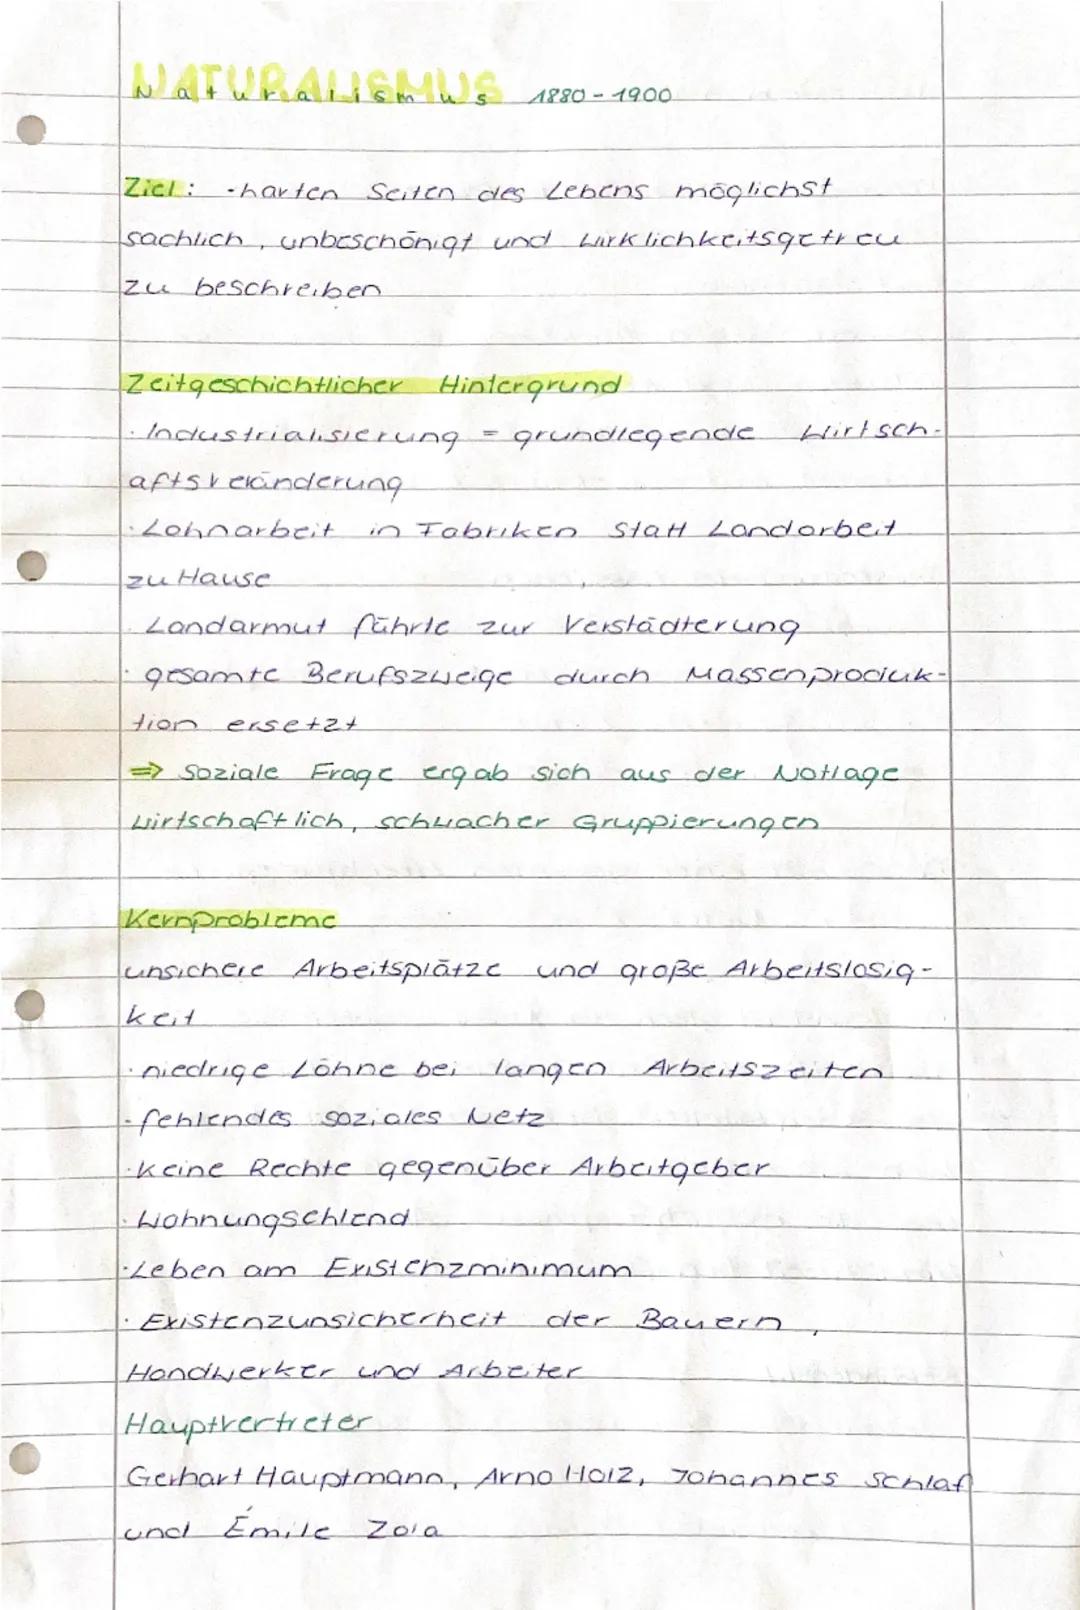 NATURALISMUS
Naturalismus 1880-1900
Ziel: -harten Seiten des Lebens möglichst
sachlich, unbeschönigt und wirklichkeitsgetreu
zu beschreiben
Zeitgeschichtlicher Hintergrund
· Industrialisierung = grundlegende Wirtsch-
aftsveränderung
· Lohnarbeit in Fabriken statt Landarbeit
zu Hause
· Landarmut führte zur Verstädterung
· gesamte Berufszweige durch Massenproduk-
tion ersetzt
=> Soziale Frage ergab sich aus der Notlage
wirtschaftlich, schwacher Gruppierungen
Kernprobleme
unsichere Arbeitsplätze und große Arbeitslosig-
keit
· niedrige Löhne bei langen Arbeitszeiten
· fehlendes soziales Netz
· Keine Rechte gegenüber Arbeitgeber
· Wohnungsehlend
· Leben am Existenzminimum
· Existenzunsicherheit der Bauern,
Handwerker und Arbeiter
Hauptvertreter
Gerhart Hauptmann, Arno Holz, Johannes Schlaf
und Émile Zola